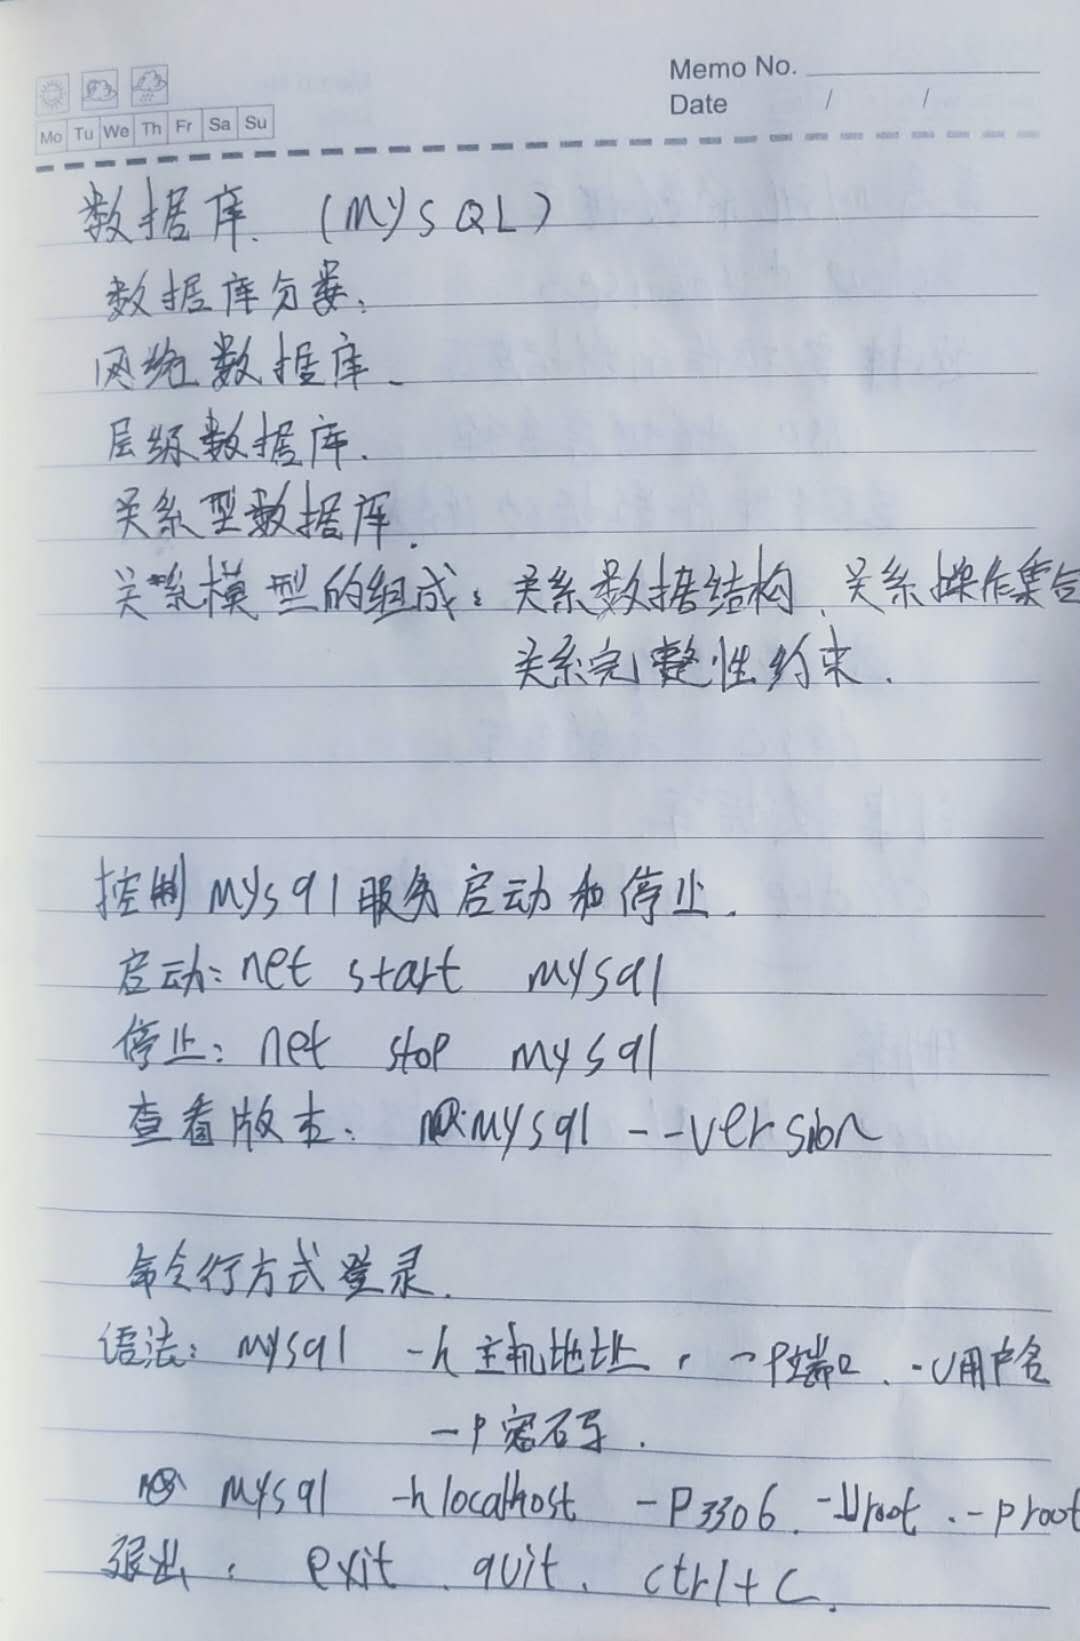 Memo No.
Date / /
Mo Tu We Th Fr Sa Su
数据库.（MySQL）
数据库分类.
网络数据库.
层级数据库.
关系型数据库.
关系模型的组成：关系数据结构、关系操作集合
关系完整性约束.
控制mysql服务启动和停止.
启动：net start mysql
停止：net stop mysql
查看版本：mysql --version
命令行方式登录.
语法：mysql -h主机地址, -P端口、-U用户名
-p密码.
mysql -hlocalhost -P3306、-Uroot、-proot
退出：exit、quit、ctrl+C.